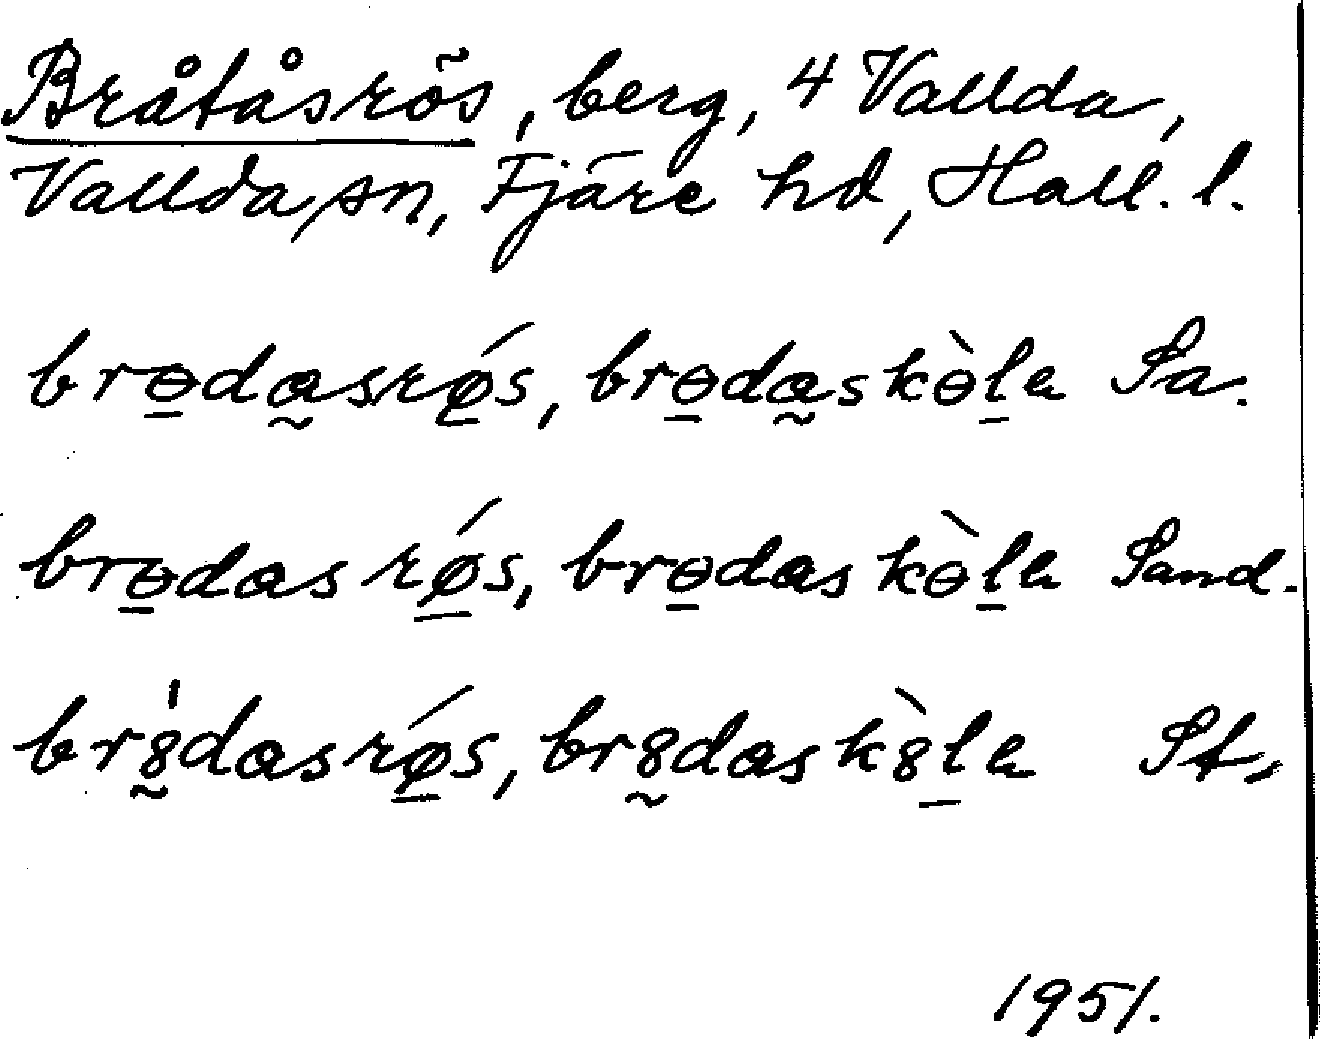 Bråtåsrös, berg, 4 Vallda,
Vallda sn, Fjäre hd, Hall. l.
brɵ̱da̰srǿ̱s, brɵ̱da̰skɵ̀ḻa Sa.
brɵ̱dasrǿ̱s, brɵ̱daskɵ̀ḻa Sand.
br8̰̍dasrǿ̱s, br8̰dask8̀ḻa St.
1951.